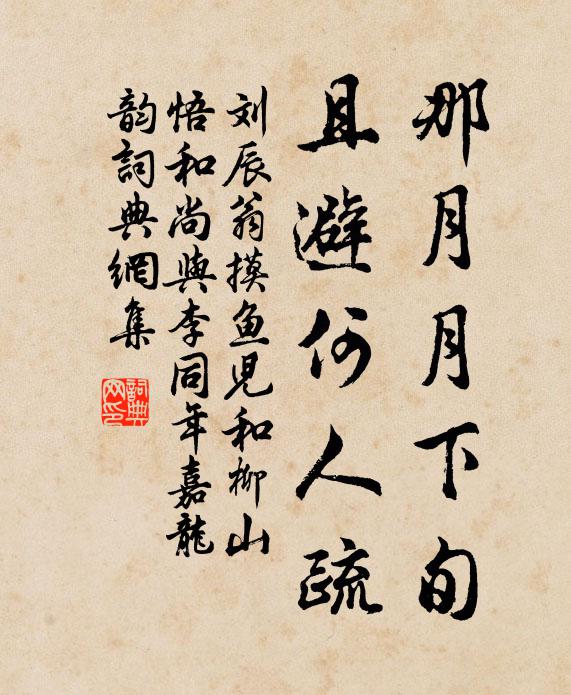 那月月下旬
且避何人疏
刘辰翁摸鱼児和柳山
悟和尚與李同年嘉龍
韵詞典網集
詞典网印